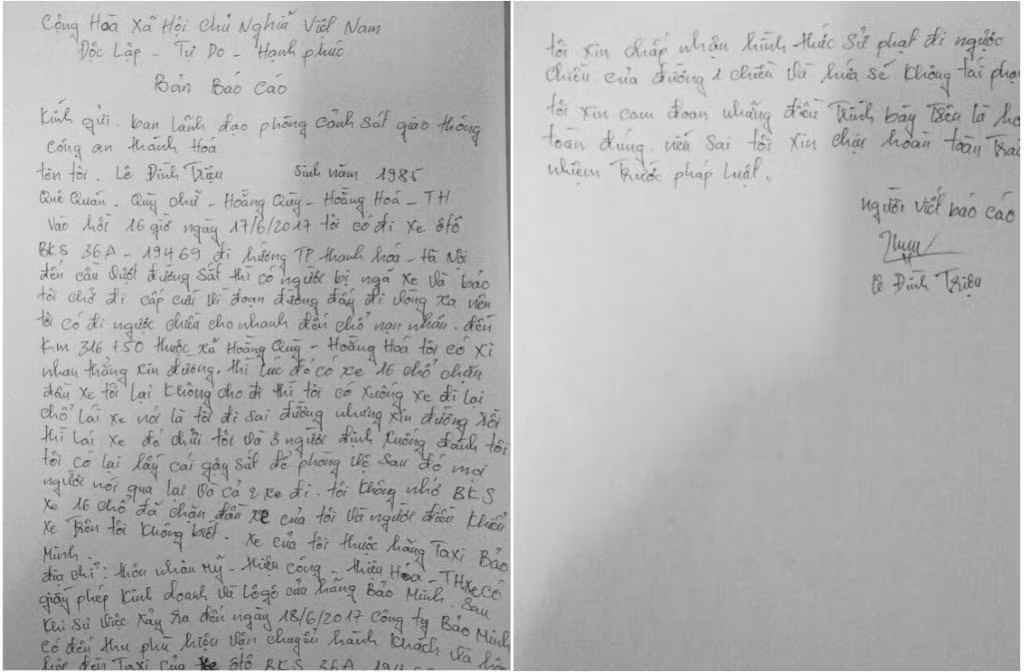 Cộng Hoà Xã Hội Chủ Nghĩa Việt Nam
Độc Lập - Tự Do - Hạnh phúc
Bản Báo Cáo
Kính gửi - ban lãnh đạo phòng cảnh sát giao thông
công an thanh Hoá
tên tôi. Lê Đình Triệu sinh năm 1985
Quê Quán. Quỳ chữ - Hoằng Quỳ - Hoằng Hoá - TH
Vào hồi 16 giờ ngày 17/6/2017 tôi có đi xe ôtô
BKS 36A - 19469 đi hướng TP thanh hoá - Hà Nội
đến cầu vượt đường sắt thì có người bị ngã xe và báo
tôi chở đi cấp cứu vì đoạn đường đấy đi vòng xa nên
tôi có đi ngược chiều cho nhanh đến chỗ nạn nhân. đến
Km 316 +50 thuộc xã Hoằng Quỳ - Hoằng Hoá tôi có xi
nhan thẳng xin đường. thì lúc đó có xe 16 chỗ chặn
đầu xe tôi lại không cho đi thì tôi có xuống xe đi lại
chỗ lái xe nói là tôi đi sai đường nhưng xin đường rồi
thì lái xe đó chửi tôi và 3 người định xuống đánh tôi
tôi có lại lấy cái gậy sắt để phòng vệ sau đó mọi
người nói qua lại và cả 2 xe đi. tôi không nhớ BKS
xe 16 chỗ đã chặn đầu xe của tôi và người điều khiển
xe trên tôi không biết. xe của tôi thuộc hãng Taxi Bảo
Minh.
địa chỉ: thôn nhân Mỹ - thiệu công - thiệu Hóa - TH xe có
giấy phép kinh doanh và Lôgô của hãng Bảo Minh. Sau
khi sự việc xảy ra đến ngày 18/6/2017 công ty Bảo Minh
có đến thu phù hiệu vận chuyển hành khách và
hộp đèn Taxi của xe ôtô BKS 36A
tôi xin chấp nhận hình thức sử phạt đi ngược
chiều của đường 1 chiều và hứa sẽ không tái phạ
tôi xin cam đoan những điều trình bày trên là ho
toàn đúng nếu sai tôi xin chịu hoàn toàn trác
nhiệm trước pháp luật.
người viết báo cáo
Lê Đình Triệu